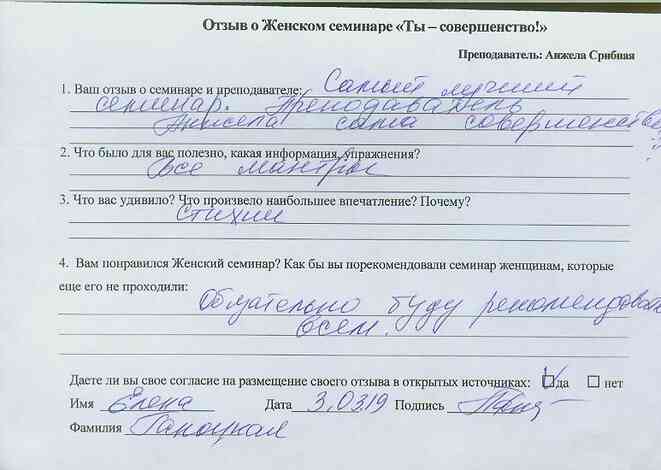 Отзыв о Женском семинаре «Ты – совершенство!»
Преподаватель: Анжела Срибная
1. Ваш отзыв о семинаре и преподавателе: Самый лучший
семинар. Преподаватель
Анжела сама совершенство
2. Что было для вас полезно, какая информация, упражнения?
Все мантры
3. Что вас удивило? Что произвело наибольшее впечатление? Почему?
стихии
4. Вам понравился Женский семинар? Как бы вы порекомендовали семинар женщинам, которые
еще его не проходили:
Обязательно буду рекомендовать
всем.
Даете ли вы свое согласие на размещение своего отзыва в открытых источниках: да нет
Имя Елена Дата 3.03.19 Подпись
Фамилия